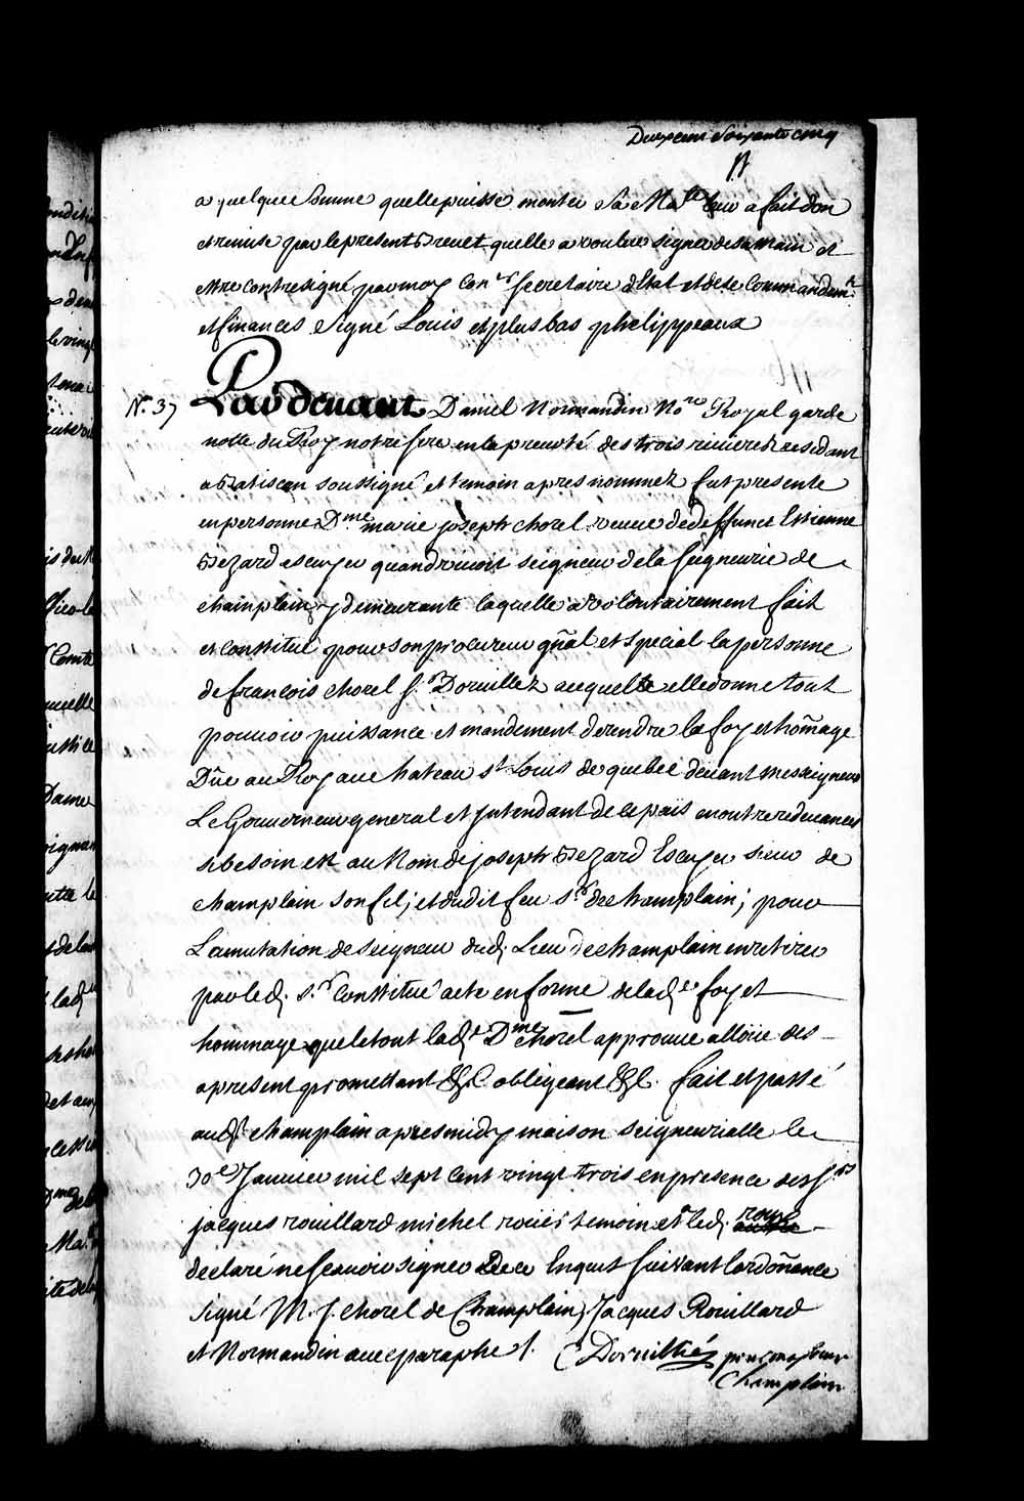 Deux cent Soixante cinq
a quelque Somme quelle puisse monter Sa Ma.té leur a fait don
et remise par le present Brevet quelle a voulu signer de sa main et
estre contresigné par moy Con.er Secretaire d'Estat et de ses Commandem.ts
et finances Signé Louis et plus bas phelippeaux
N.o 37 Pardevant Daniel Normandin No.re Royal garde
notte du Roy notre sire en la prevoté des trois rivieres residant
a Batiscan soussigné et temoin apres nommez fut presente
en personne D.me marie joseph chorel veuve de deffunct Estienne
Bezard escuyer quand vivoit seigneur de la seigneurie de
champlain y demeurante laquelle a volontairement fait
et constitué pour son procureur gñal et special la personne
de francois chorel s.r Dorvillez auquel elle donne tout
pouvoir puissance et mandement de rendre la foy et hom̃age
Düe au Roy au chateau s.t Louis de quebec devant messeigneurs
Le Gouverneur general et Intendant de ce païs en outre redevances
si besoin est au Nom de joseph Bezard Escuyer sieur de
champlain son fils et dudit feu s.r de champlain; pour
La mutation de seigneur dud. Lieu de champlain en retirer
par led. s.r constitué acte en forme de lad.e foy et
hommage que le tout lad.e D.me chorel approuve alloüe des
apresent promettant &c obligeant &c. fait et passé
aud.t champlain apres midy maison seigneurialle le
30.e Janvier mil sept cent vingt trois en presence des s.rs
jacques rouillard michel roüei temoin et led. rouei
declaré ne scavoir signer De ce Enquis suivant l'ordoñance
signé M. J. chorel de Champlain, Jacques Rouillard
et Normandin avec paraphe /. C Dorvilliéz pour ma soeur
Champlain